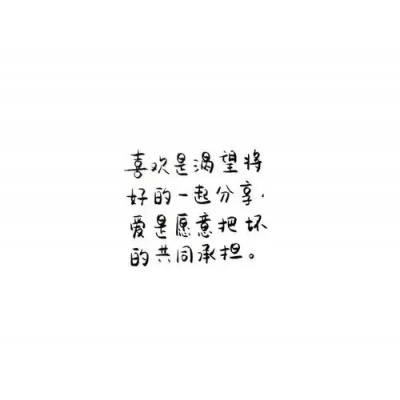 喜欢是渴望将
好的一起分享,
爱是愿意把坏
的共同承担。